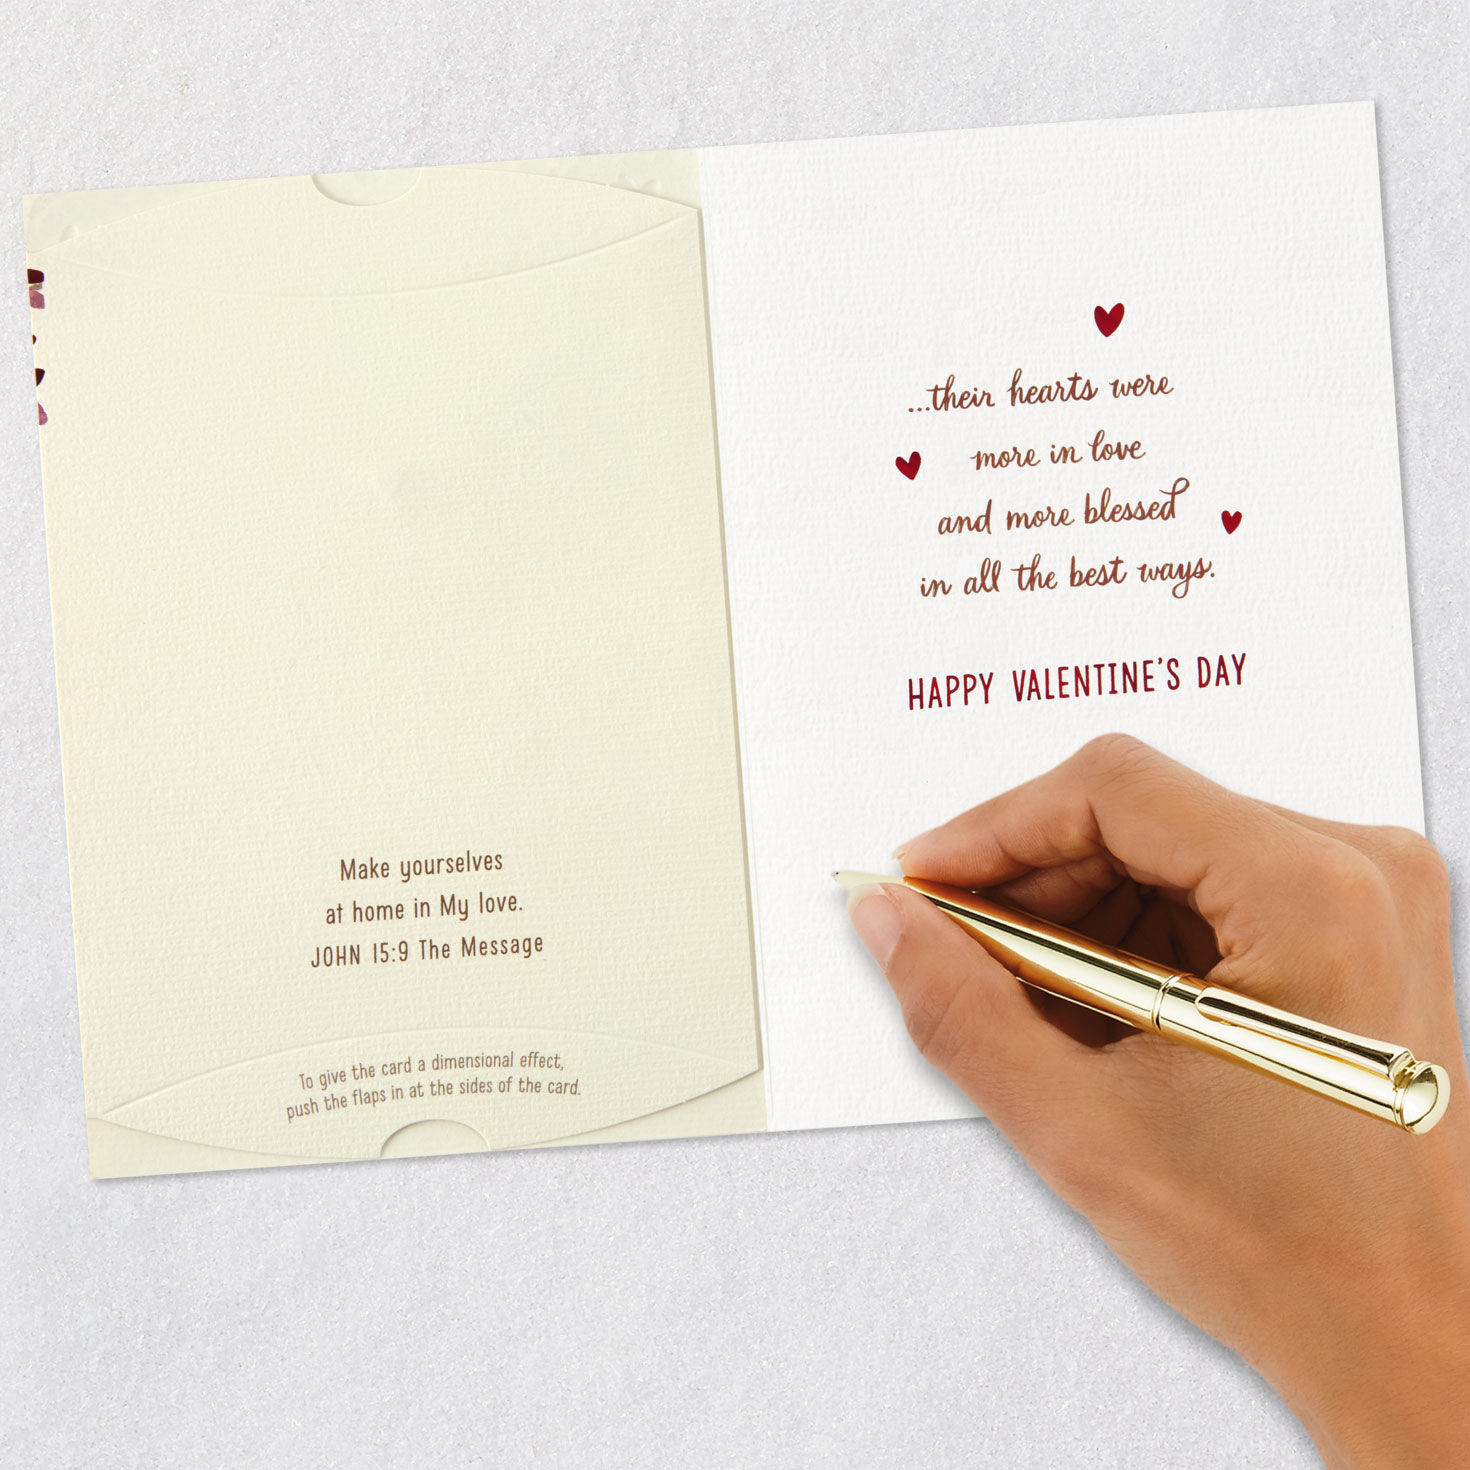 Make yourselves
at home in My love.
JOHN 15:9 The Message
To give the card a dimensional effect,
push the flaps in at the sides of the card.
...their hearts were
more in love
and more blessed
in all the best ways.
HAPPY VALENTINE'S DAY